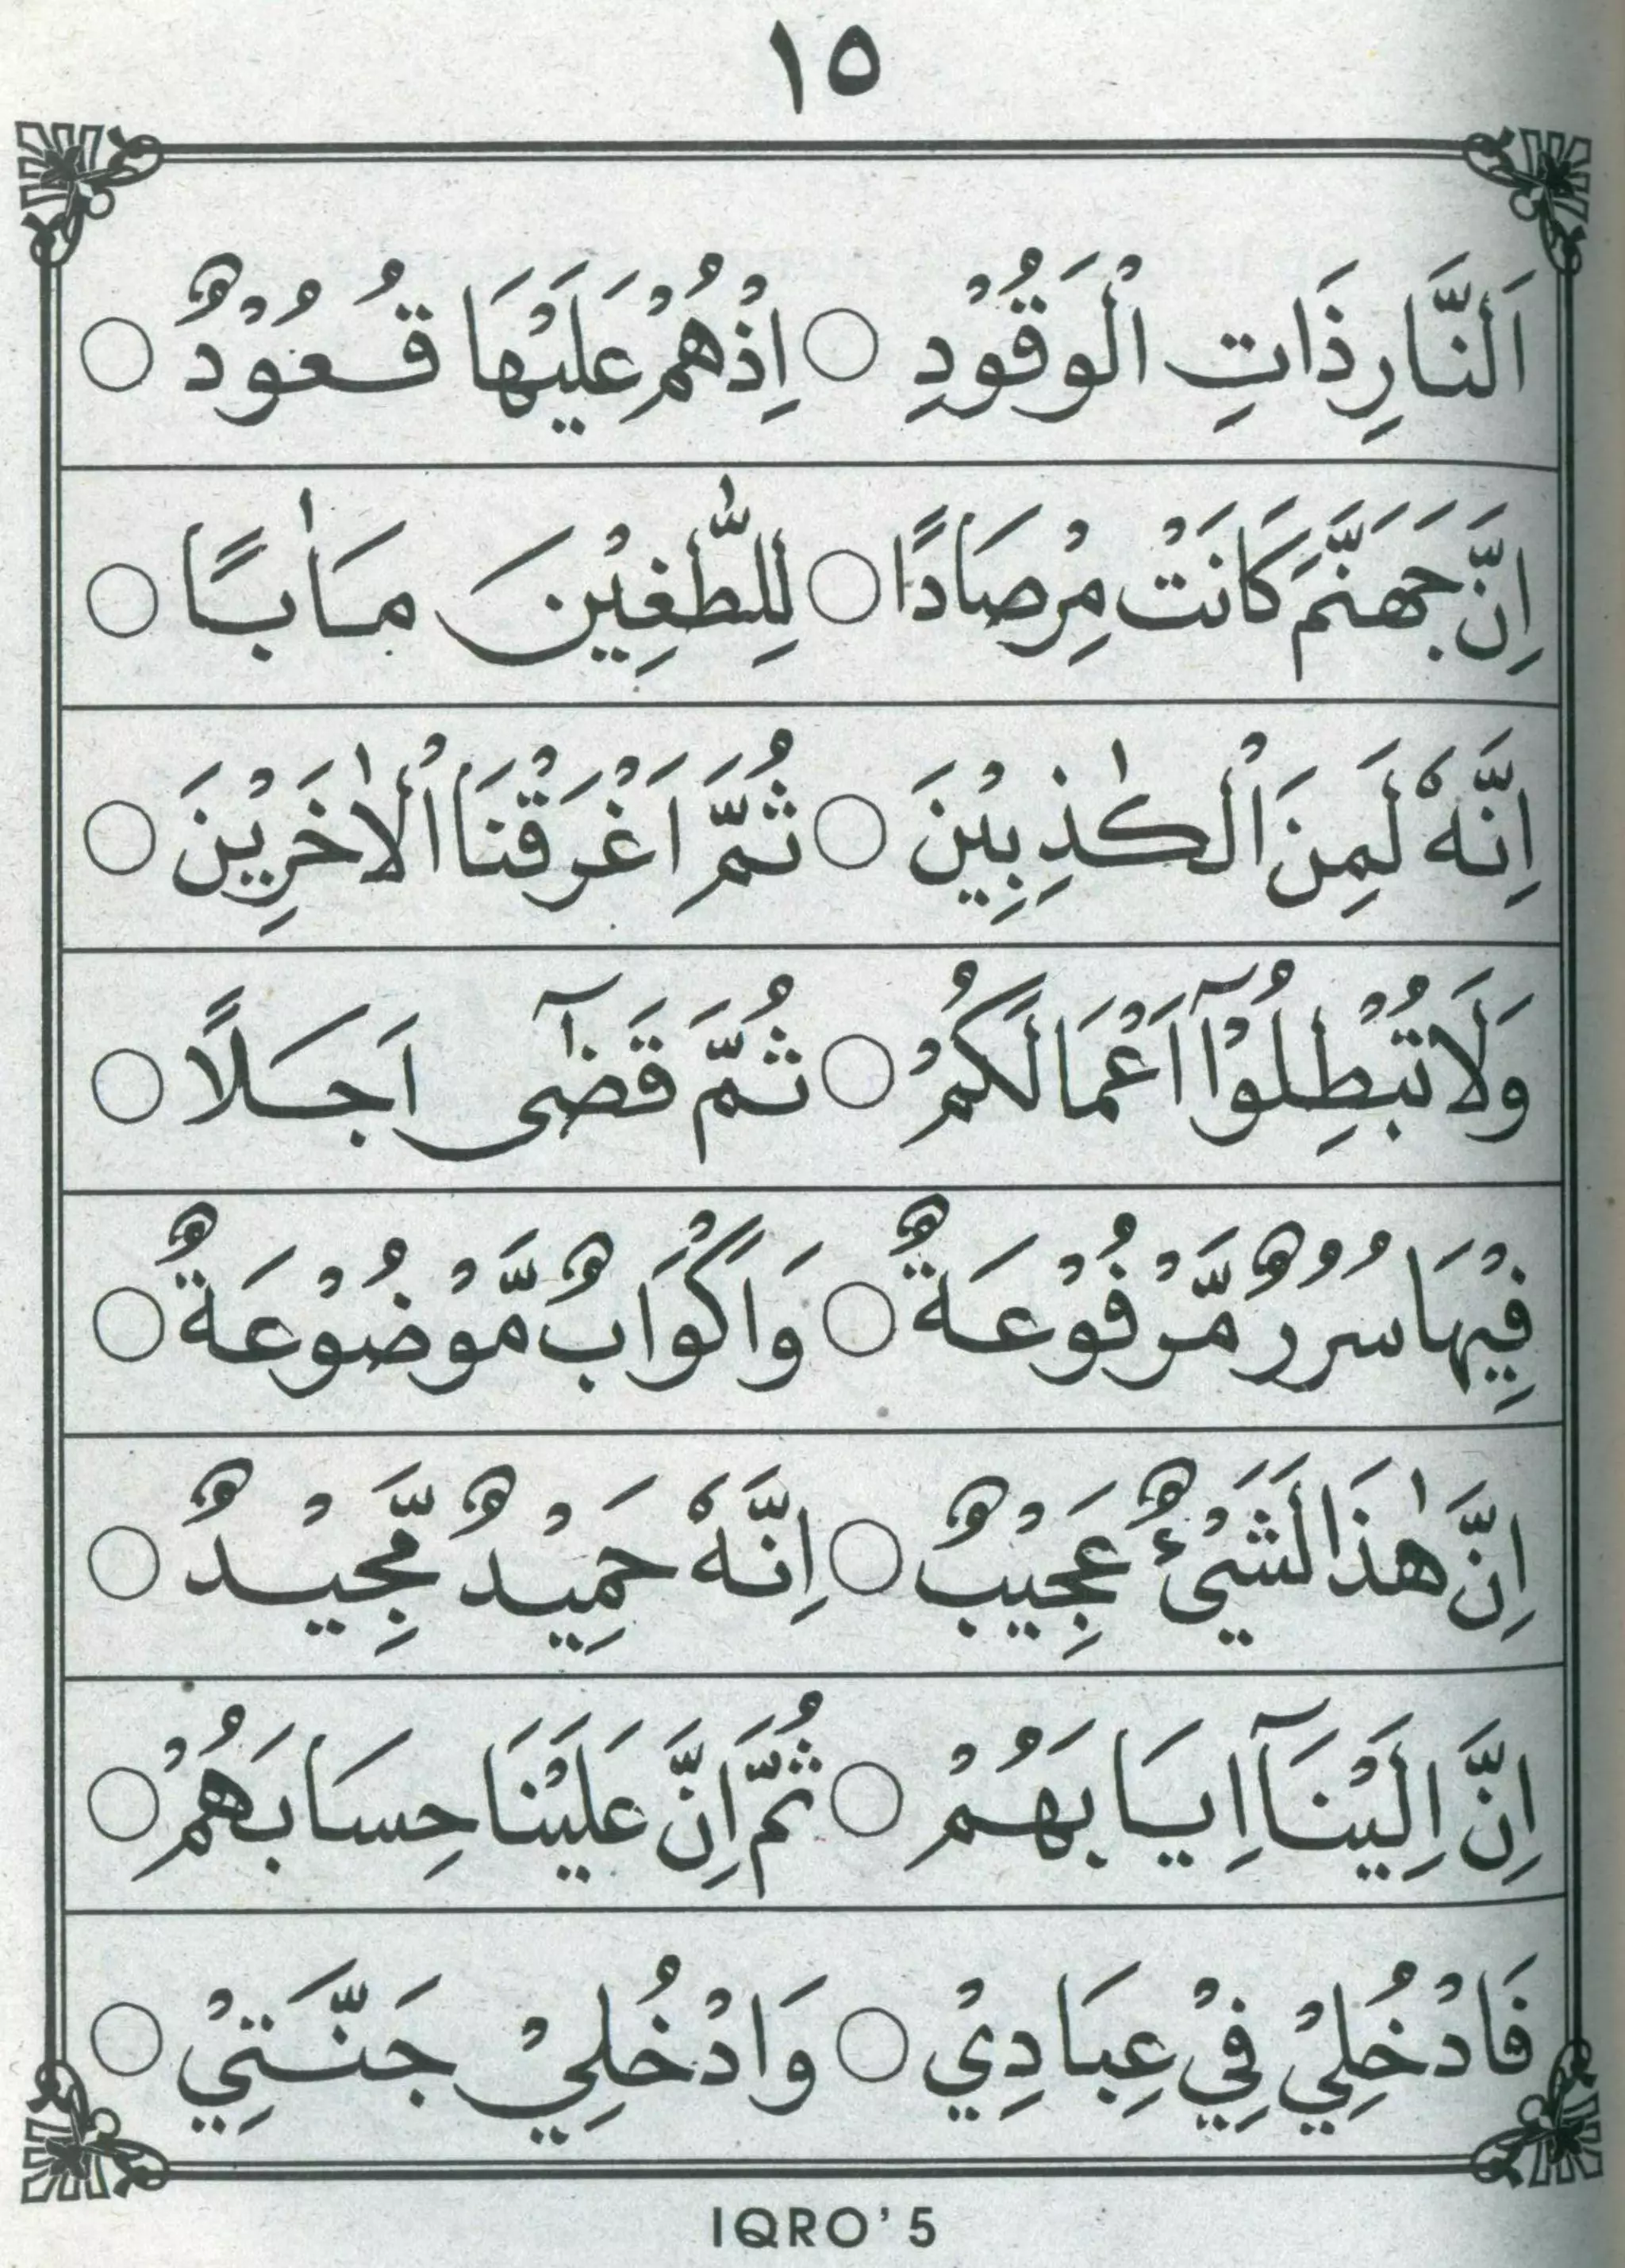 ١٥
اَلنَّارِ ذَاتِ الْوَقُوْدِ ○ اِذْهُمْ عَلَيْهَا قُعُوْدٌ ○
اِنَّ جَهَنَّمَ كَانَتْ مِرْصَادًا ○ لِلطّٰغِيْنَ مَاٰبًا ○
اِنَّهٗ لَمِنَ الْكٰذِبِيْنَ ○ ثُمَّ اَغْرَقْنَا الْاٰخَرِيْنَ ○
وَلَا تُبْطِلُوْٓا اَعْمَالَكُمْ ○ ثُمَّ قَضٰٓى اَجَلًا ○
فِيْهَا سُرُرٌ مَّرْفُوْعَةٌ ○ وَاَكْوَابٌ مَّوْضُوْعَةٌ ○
اِنَّ هٰذَا لَشَيْئٌ عَجِيْبٌ ○ اِنَّهٗ حَمِيْدٌ مَّجِيْدٌ ○
اِنَّ اِلَيْنَآ اِيَابَهُمْ ○ ثُمَّ اِنَّ عَلَيْنَا حِسَابَهُمْ ○
فَادْخُلِيْ فِيْ عِبَادِيْ ○ وَادْخُلِيْ جَنَّتِيْ ○
IQRO' 5